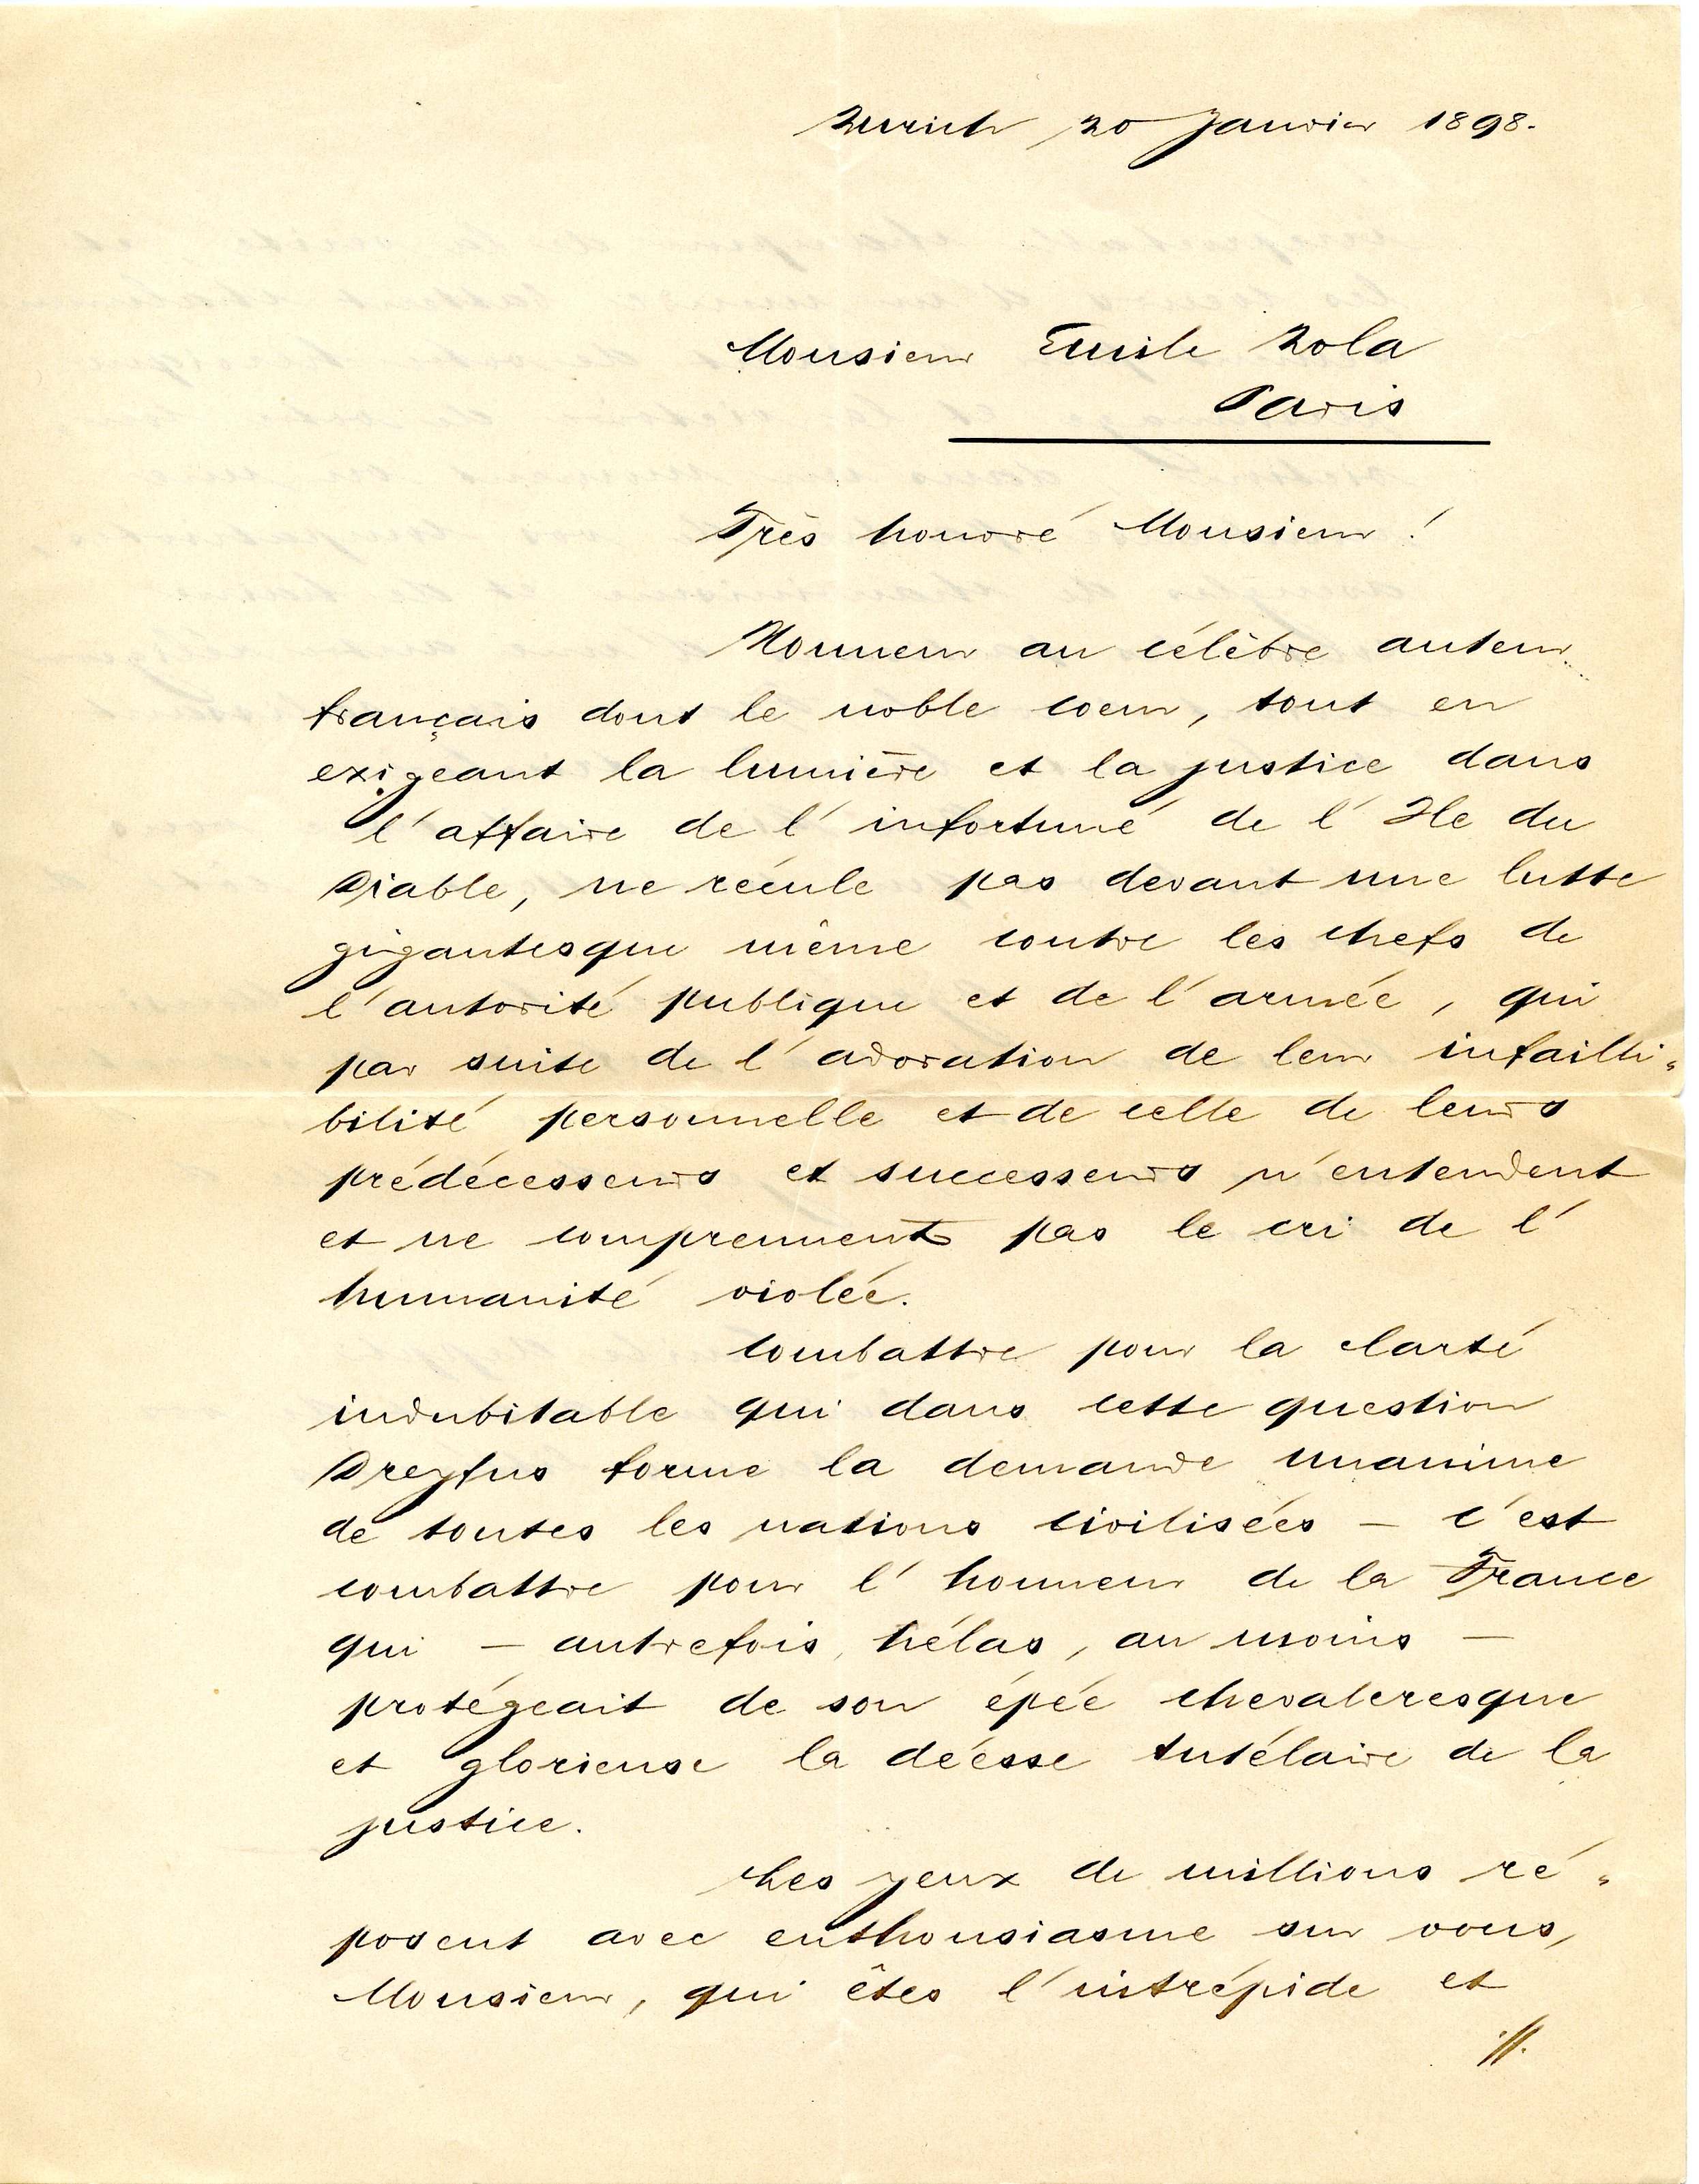 Zurich 20 Janvier 1898.
Monsieur Emile Zola
Paris
Très honoré Monsieur !
Honneur au célèbre auteur
français dont le noble coeur, tout en
exigeant la lumière et la justice dans
l'affaire de l'infortuné de l'Ile du
Diable, ne récule pas devant une lutte
gigantesque même contre les chefs de
l'autorité publique et de l'armée, qui
par suite de l'adoration de leur infailli-
bilité personnelle et de celle de leurs
prédécesseurs et successeurs n'entendent
et ne comprennent pas le cri de l'
humanité violée.
Combattre pour la clarté
indubitable qui dans cette question
Dreyfus forme la demande unanime
de toutes les nations civilisées – c'est
combattre pour l'honneur de la France
qui – autrefois, hélas, au moins –
protégeait de son épée chevaleresque
et glorieuse la déesse tutélaire de la
justice.
Les yeux de millions ré-
posent avec enthousiasme sur vous,
Monsieur, qui êtes l'intrépide et
·/.